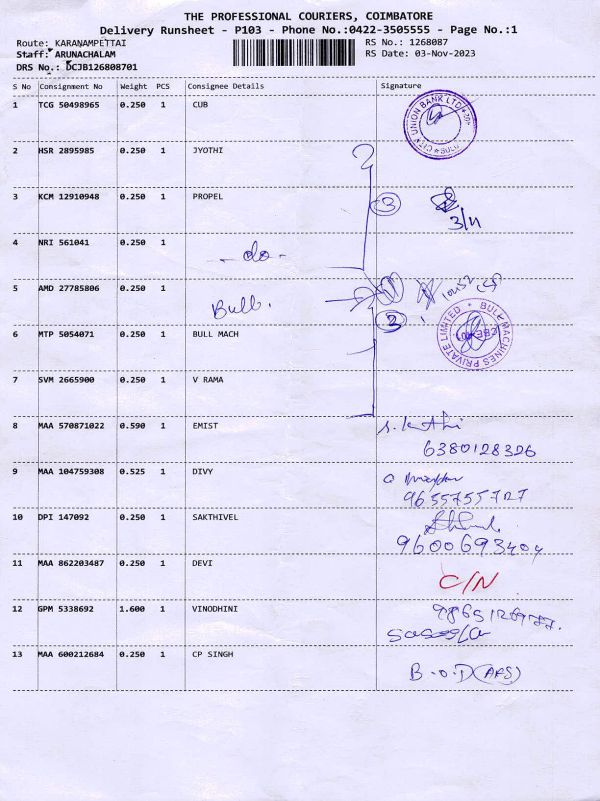 THE PROFESSIONAL COURIERS, COIMBATORE
Delivery Runsheet - P103 - Phone No.:0422-3505555 - Page No.:1
Route: KARANAMPETTAI RS No.: 1268087
Staff: ARUNACHALAM RS Date: 03-Nov-2023
DRS No.: DCJB126808701
S No Consignment No Weight PCS Consignee Details Signature
1 TCG 50498965 0.250 1 CUB
CITY UNION BANK LTD SULU
2 HSR 2895985 0.250 1 JYOTHI
3 KCM 12910948 0.250 1 PROPEL 3
3/11
4 NRI 561041 0.250 1 - do -
5 AMD 27785806 0.250 1 Bull.
3
6 MTP 5054071 0.250 1 BULL MACH
BULL MACHINES PRIVATE LIMITED
7 SVM 2665900 0.250 1 V RAMA
8 MAA 570871022 0.590 1 EMIST
6380128326
9 MAA 104759308 0.525 1 DIVY
9655755727
10 DPI 147092 0.250 1 SAKTHIVEL
9600693404
11 MAA 862203487 0.250 1 DEVI C/N
12 GPM 5338692 1.600 1 VINODHINI
13 MAA 600212684 0.250 1 CP SINGH B.O.D